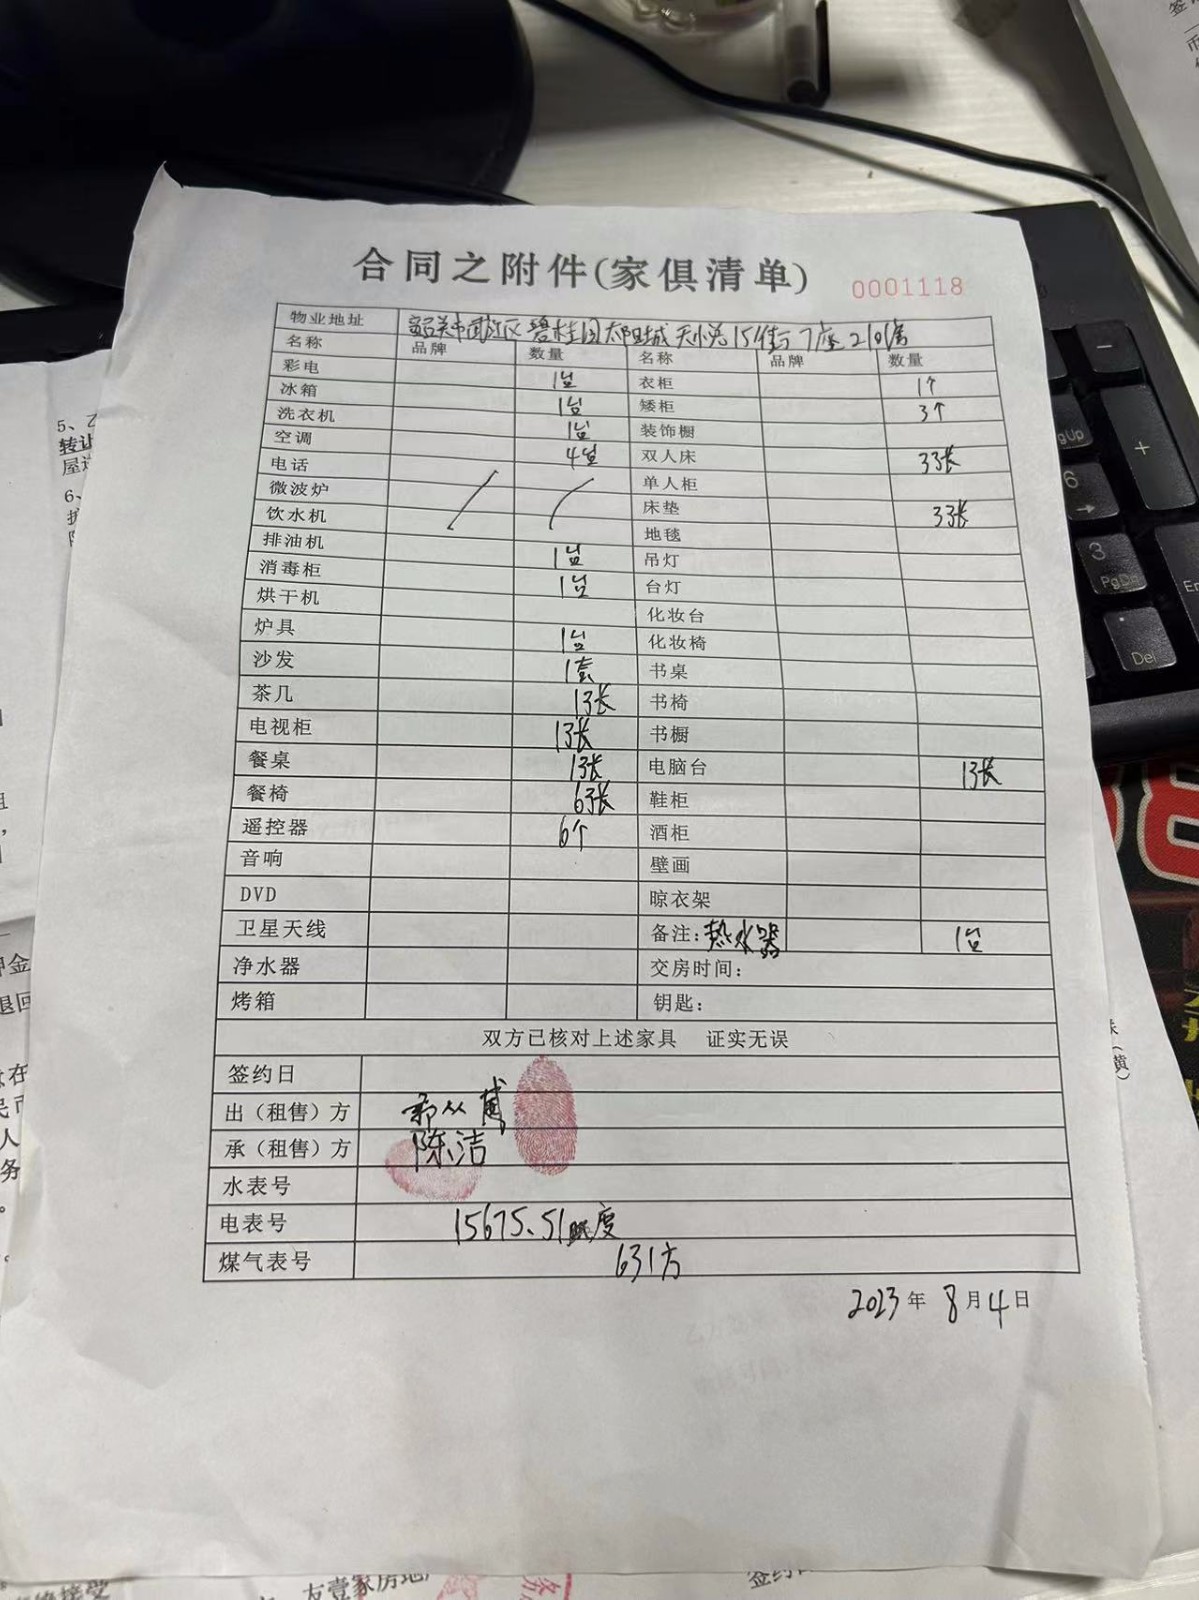 合同之附件(家俱清单) 0001118
物业地址 韶关市武江区碧桂园太阳城天小苑15街7座210房
名称 品牌 数量 名称 品牌 数量
彩电 1台 衣柜 1个
冰箱 1台 矮柜 3个
洗衣机 1台 装饰橱
空调 4台 双人床 3张
电话 单人柜
微波炉 床垫 3张
饮水机 地毯
排油机 1台 吊灯
消毒柜 1台 台灯
烘干机 化妆台
炉具 1台 化妆椅
沙发 1套 书桌
茶几 1张 书椅
电视柜 1张 书橱
餐桌 1张 电脑台 1张
餐椅 6张 鞋柜
遥控器 6个 酒柜
音响 壁画
DVD 晾衣架
卫星天线 备注:热水器 1台
净水器 交房时间:
烤箱 钥匙:
双方已核对上述家具 证实无误
签约日
出（租售）方
承（租售）方 陈洁
水表号
电表号 15675.51度
煤气表号 631方
2023年8月4日
5、乙
转让
6、
押金
退回
在
民币
人
务
友壹家房地产
接受
签约
（黄）
PgUp
6
3
PgDn
Del
+